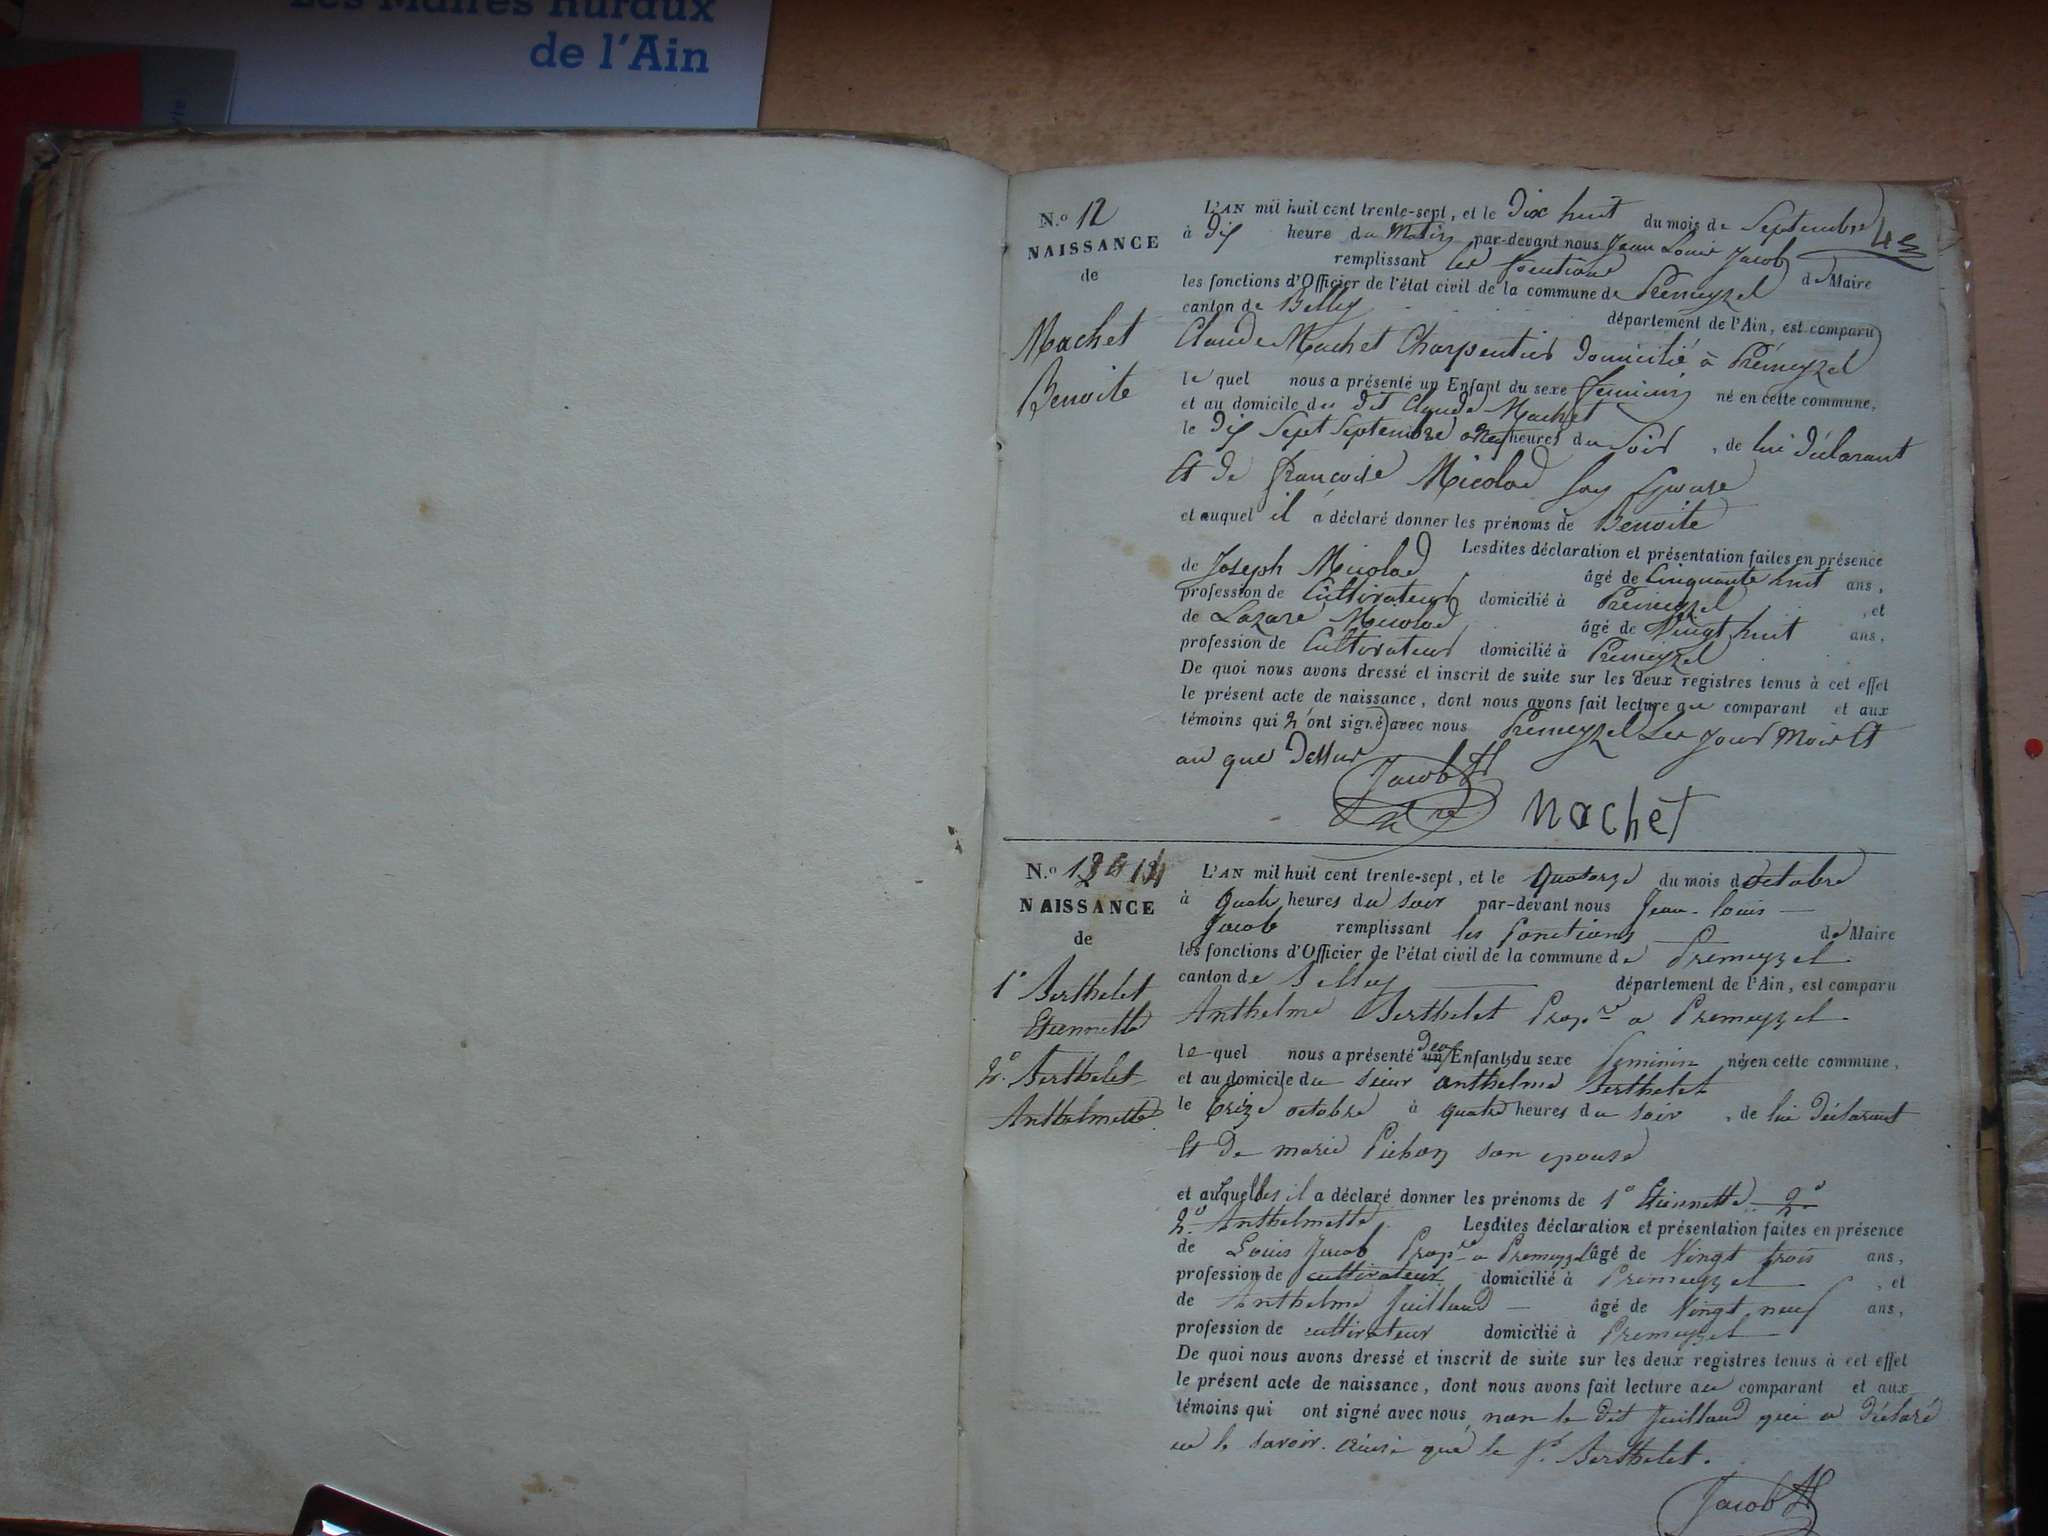 Les Maires Ruraux
de l'Ain
N.o 12
NAISSANCE
de
Machet
Benoite
43
L'AN mil huit cent trente-sept, et le Dix huit du mois de Septembre
à Dix heure du Matin par-devant nous Jean Louis Jacob
remplissant les fonctions de Maire
les fonctions d'Officier de l'état civil de la commune de Premeyzel
canton de Belley département de l'Ain, est comparu
Claude Machet Charpentier Domicilié à Prémeyzel
le quel nous a présenté un Enfant du sexe feminin né en cette commune,
et au domicile du dit Claude Machet
le Dix Sept Septembre onze heures du Soir, de lui Déclarant
Et de françoise Micolod son Epouse
et auquel il a déclaré donner les prénoms de Benoite
Lesdites déclaration et présentation faites en présence
de Joseph Micolod âgé de Cinquante huit ans,
profession de Cultivateur domicilié à Premeyzel, et
de Lazare Micolod âgé de Vingt huit ans,
profession de Cultivateur domicilié à Premeyzel
De quoi nous avons dressé et inscrit de suite sur les deux registres tenus à cet effet
le présent acte de naissance, dont nous avons fait lecture au comparant et aux
témoins qui n'ont signé avec nous Premeyzel Les jour Mois Et
an que Dessus
Jacob
Machet
N.o 13 & 14
NAISSANCE
de
1° Berthelet
Etiennette
2° Berthelet
Anthelmette
L'AN mil huit cent trente-sept, et le quatorze du mois d'octobre
à quatre heures du soir par-devant nous Jean-louis
Jacob remplissant les fonctions de Maire
les fonctions d'Officier de l'état civil de la commune de Premeyzel
canton de Belley département de l'Ain, est comparu
Anthelme Berthelet Propre a Premeyzel
le quel nous a présenté un deux Enfants du sexe feminin nés en cette commune,
et au domicile du sieur anthelme Berthelet
le treize octobre à quatre heures du soir, de lui Déclarant
Et De marie Pichon son epouse
et auxquelles il a déclaré donner les prénoms de 1° Etiennette 2°
2° Anthelmette Lesdites déclaration et présentation faites en présence
de Louis Jacob Propre a Premeyzel âgé de Vingt trois ans,
profession de cultivateur domicilié à Premeyzel, et
de Anthelme Juilland âgé de Vingt neuf ans,
profession de cultivateur domicilié à Premeyzel
De quoi nous avons dressé et inscrit de suite sur les deux registres tenus à cet effet
le présent acte de naissance, dont nous avons fait lecture au comparant et aux
témoins qui ont signé avec nous non le dit Juilland qui a déclaré
ne le savoir. ainsi que le Sr. Berthelet.
Jacob